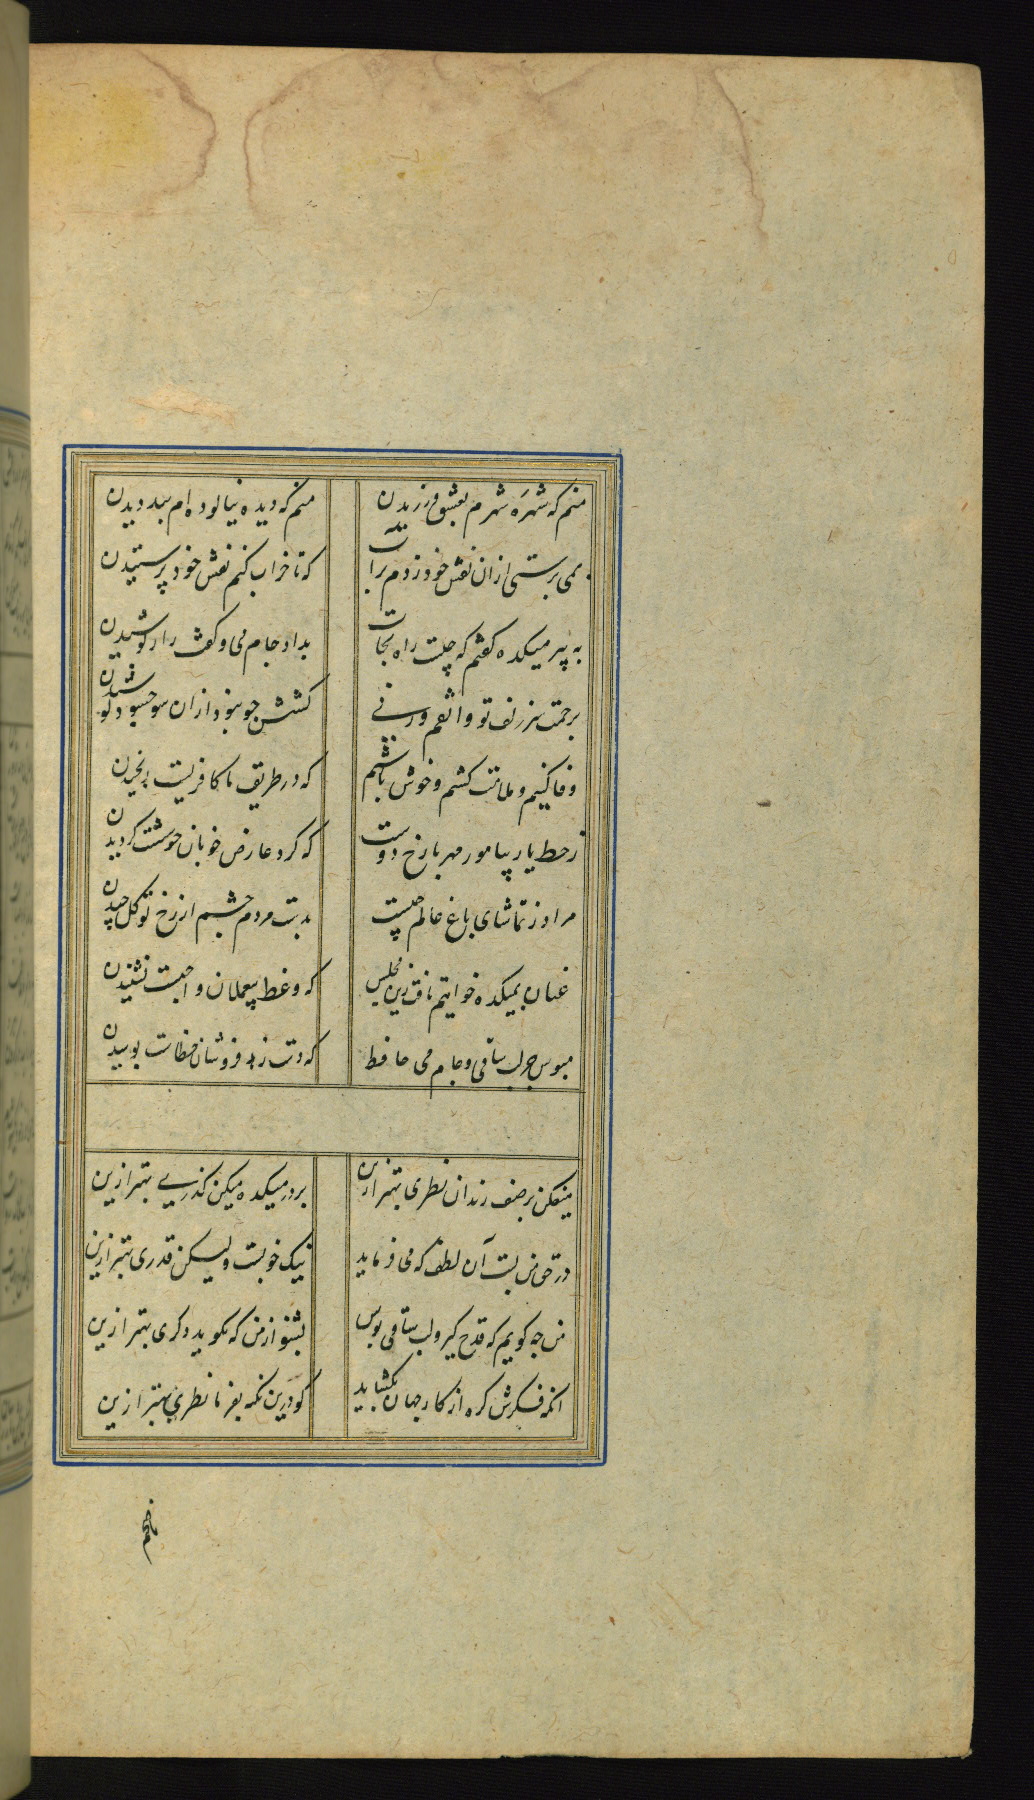 منم که شهره شهرم بعشق ورزیدن
منم که دیده نیالوده ام ببد دیدن
بمی پرستی ازان نقش خود زدم بر آب
که تا خراب کنم نقش خود پرستیدن
به پیر میکده گفتم که چیست راه نجات
بداد جام می و گفت راز پوشیدن
برحمت سر زلف تو واثقم ورنی
کشش چو نبود ازان سو چسود کوشیدن
وفا کنیم و ملامت کشیم و خوش باشیم
که در طریقت ما کافریست رنجیدن
ز خط یار بیاموز مهر با رخ دوست
که گرد عارض خوبان خوشست گردیدن
مراد ز تماشای باغ عالم چیست
بدست مردم چشم از رخ تو گل چیدن
عنان بمیکده خواهیم تافت زین مجلس
که وعظ بیعملان واجبست نشنیدن
مبوس جز لب ساقی و جام می حافظ
که دست زهد فروشان خطاست بوسیدن
میفکن بر صف رندان نظری بهتر ازین
بر در میکده میکن گذری بهتر ازین
در حق من لبت آن لطف که می فرماید
نیک خوبست ولیکن قدری بهتر ازین
من چه گویم که قدح گیر و لب ساقی بوس
بشنو از من که نگوید دگری بهتر ازین
انکه فکرش گره از کار جهان بگشاید
گو درین نکته بفرما نظری بهتر ازین
ناصحم